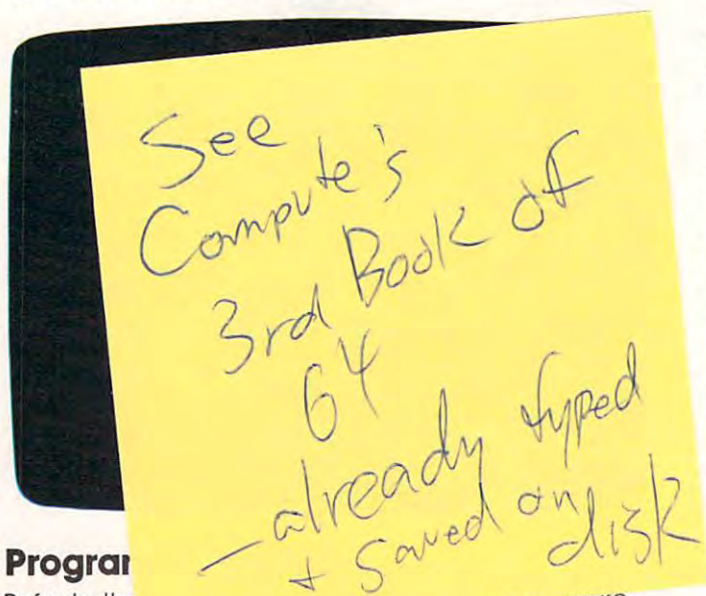 See
Compute's
3rd Book of
64
— already typed
+ saved on disk